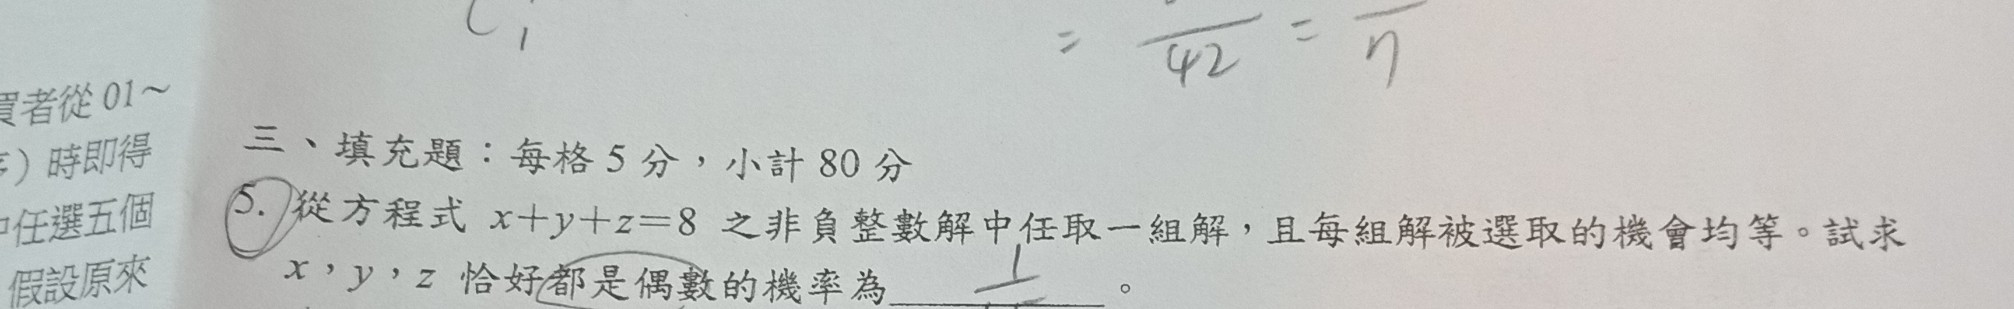 C 1
= /42 = /η
買者從 01～
時即得
中任選五個
假設原來
三、填充題：每格 5 分，小計 80 分
5. 從方程式 x+y+z=8 之非負整數解中任取一組解，且每組解被選取的機會均等。試求
x，y，z 恰好都是偶數的機率為 1 。